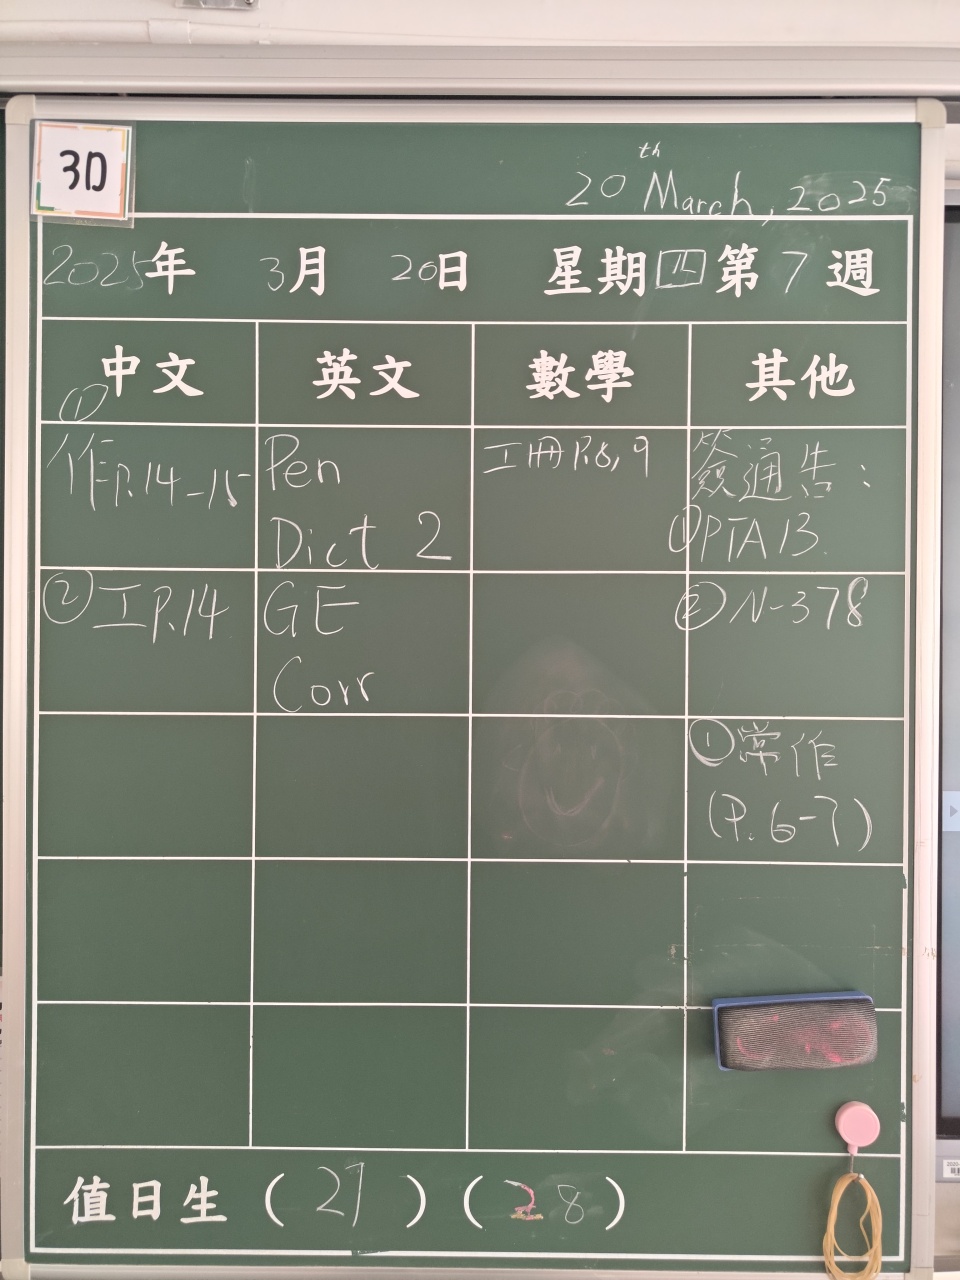 3D
20th March, 2025
2025年 3月 20日 星期四 第7週
中文 英文 數學 其他
①
作P.14-15
Pen
Dict 2
工冊P.8,9
簽通告：
①PTA13.
②工P.14
GE
Corr
②N-378
①常作
(P.6-7)
值日生 (27) (28)